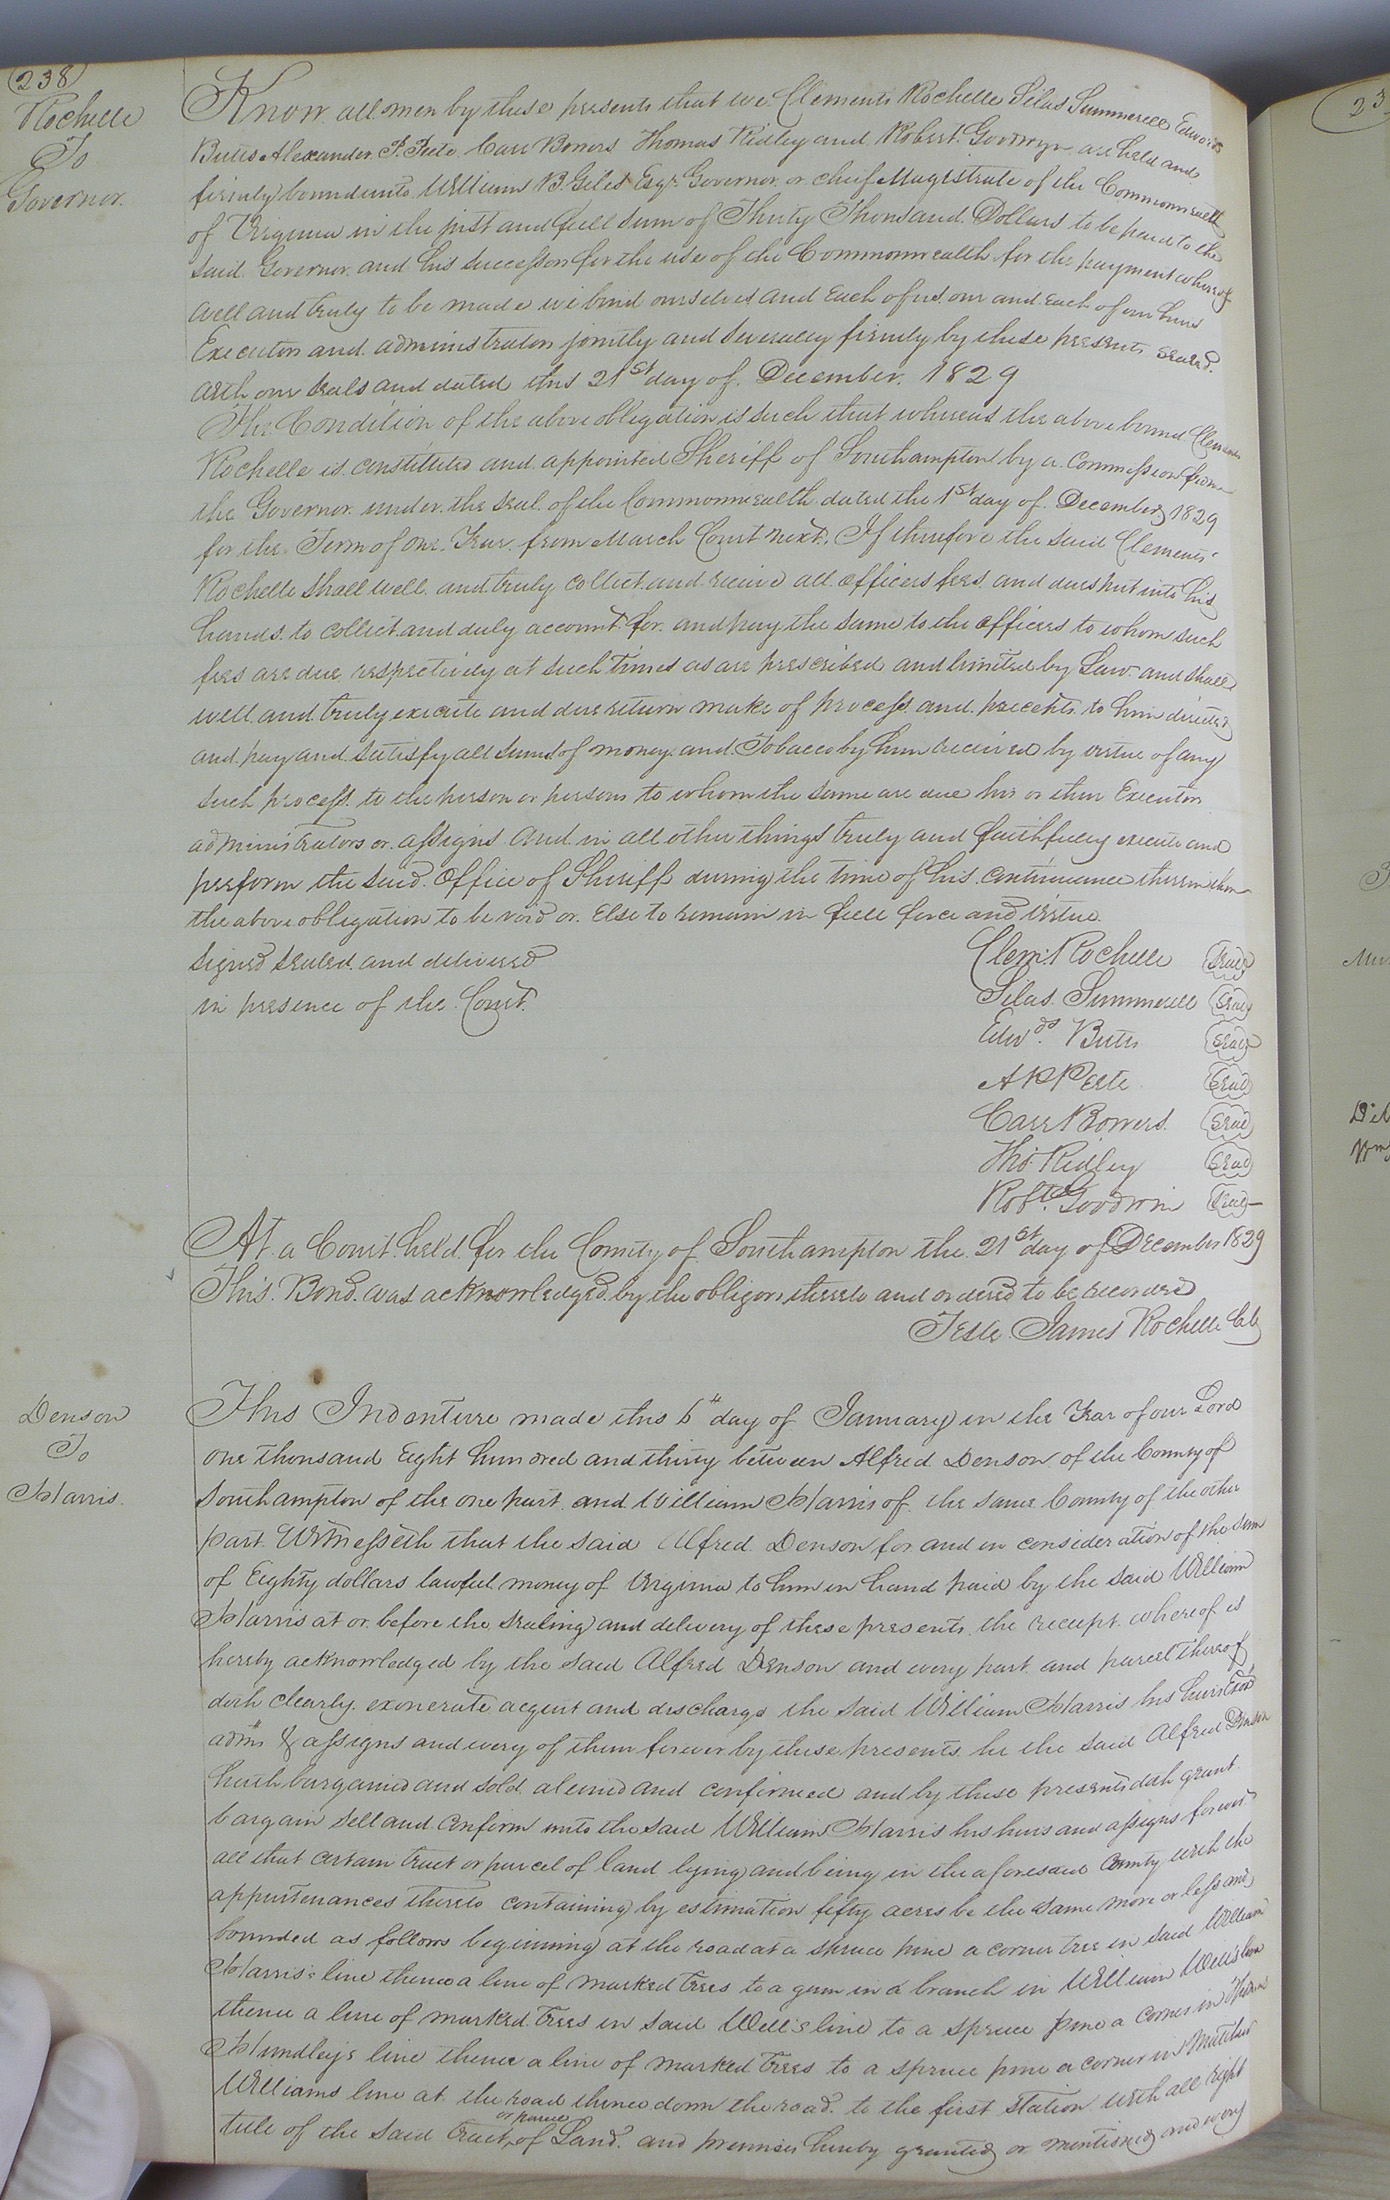 238
Rochelle
To
Governor.
Know all men by these presents that we Clements Rochelle Silas Summerell Edwards
Butts Alexander P. Peete Carr Bowers Thomas Ridley and Robert Goodwyn are held and
firmly bound unto William B. Giles Esqr. Governor or chief Magistrate of the Commonwealth
of Virginia in the just and full sum of Thirty Thousand Dollars to be paid to the
said Governor and his successors for the use of the Commonwealth for the payment whereof
well and truly to be made we bind ourselves and each of us our and each of our heirs
Executors and administrators jointly and severally firmly by these presents sealed.
with our seals and dated this 21st day of December. 1829
The Condition of the above obligation is such that whereas the above bound Clements
Rochelle is constituted and appointed Sheriff of Southampton by a commission from
the Governor under the seal of the Commonwealth dated the 1st day of December 1829
for the Term of one Year from March Court next. If therefore the said Clements
Rochelle shall well and truly collect and receive all officers fees and dues put into his
hands to collect and duly account for and pay the same to the officers to whom such
fees are due respectively at such times as are prescribed and limited by Law and shall
well and truly execute and due return make of process and precepts to him directed
and pay and satisfy all sums of money and Tobacco by him received by virtue of any
such process to the person or persons to whom the same are due his or their Executors
administrators or assigns and in all other things truly and faithfully execute and
perform the said Office of Sheriff during the time of his continuance therein then
the above obligation to be void or Else to remain in full force and virtue.
Signed sealed and delivered
in presence of the Court.
Clem: Rochelle Seal
Silas Summerell Seal
Edwds. Butts Seal
A P Peete Seal
Carr Bowers. Seal
Tho Ridley Seal
Robt. Goodwin Seal
At a Court held for the County of Southampton the 21st day of December 1829
This Bond was acknowledged by the obligors thereto and ordered to be recorded
Teste James Rochelle Clk
Denson
To
Harris.
This Indenture made this 6th day of January in the Year of our Lord
one thousand Eight hundred and thirty between Alfred Denson of the County of
Southampton of the one part and William Harris of the same County of the other
part Witnesseth that the said Alfred Denson for and in consideration of the sum
of Eighty dollars lawful money of Virginia to him in hand paid by the said William
Harris at or before the sealing and delivery of these presents the receipt whereof is
hereby acknowledged by the said Alfred Denson and every part and parcel thereof
doth clearly exonerate acquit and discharge the said William Harris his heirs Exors
admrs & assigns and every of them forever by these presents he the said Alfred Denson
hath bargained and sold aliened and confirmed and by these presents doth grant
bargain sell and confirm unto the said William Harris his heirs and assigns forever
all that certain tract or parcel of land lying and being in the aforesaid County with the
appurtenances thereto containing by estimation fifty acres be the same more or less and
bounded as follows beginning at the road at a spruce pine a corner tree in said William
Harris's line thence a line of marked trees to a gum in a branch in William Wells's line
thence a line of marked trees in said Well's line to a spruce pine a corner in
Hundley's line thence a line of marked trees to a spruce pine a corner in
Williams line at the road thence down the road to the first station with all right
title of the said tract or parcel of Land and premises hereby granted or mentioned and every